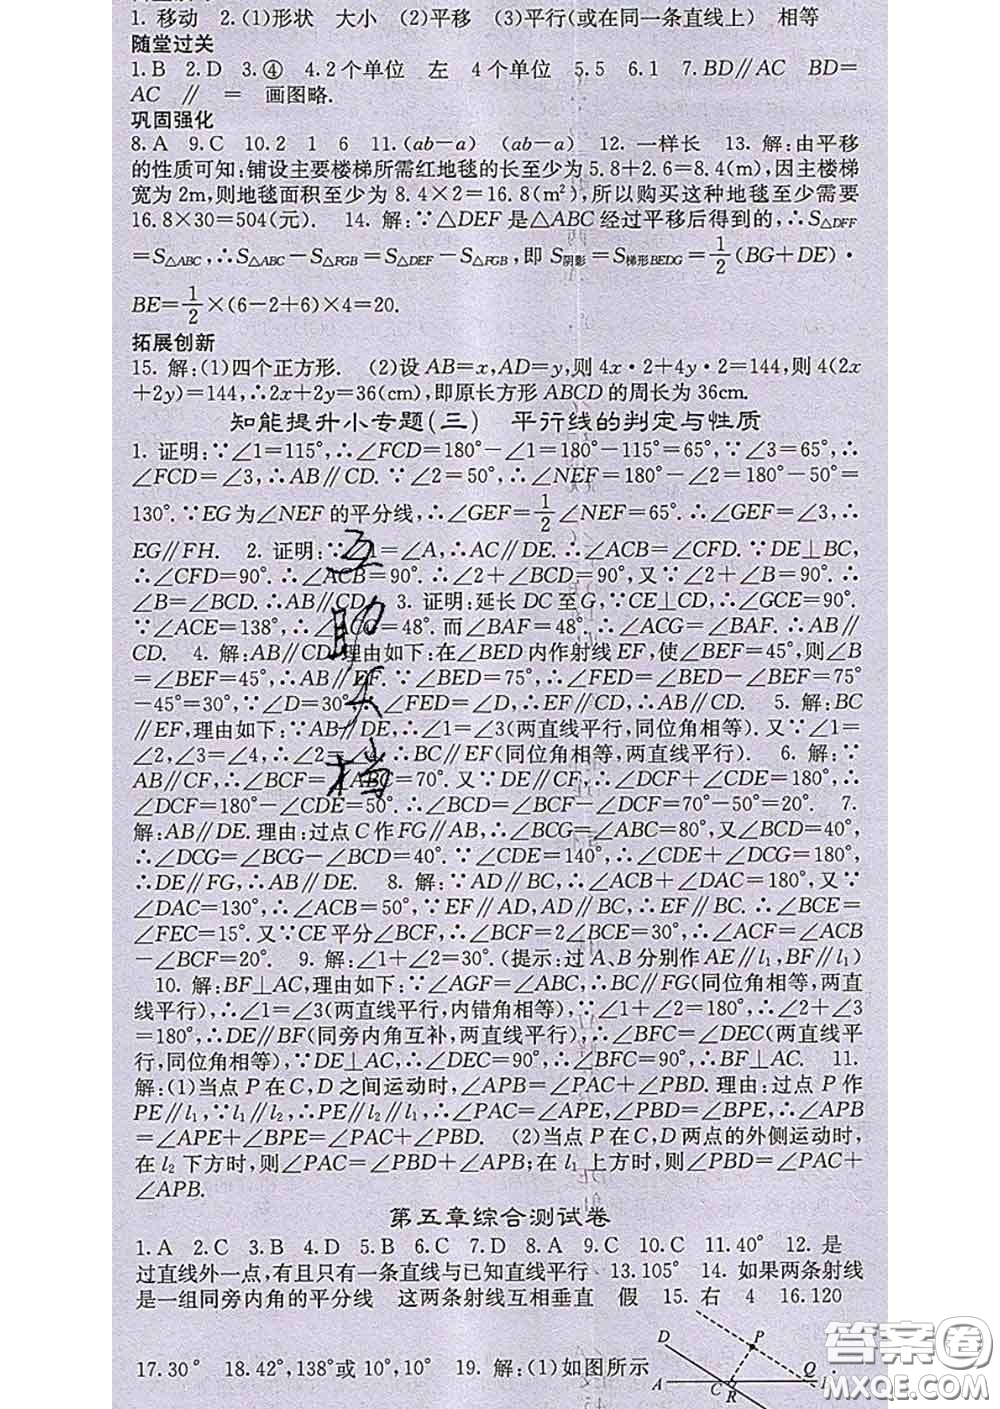 1. 移动 2.(1)形状 大小 (2)平移 (3)平行(或在同一条直线上) 相等
随堂过关
1. B 2. D 3. ④ 4. 2个单位 左 4个单位 5. 5 6. 1 7. BD∥AC BD=
AC ∥ = 画图略.
巩固强化
8. A 9. C 10. 2 1 6 11. (ab-a) (ab-a) 12. 一样长 13. 解:由平移
的性质可知:铺设主要楼梯所需红地毯的长至少为 5.8+2.6=8.4(m),因主楼梯
宽为2m,则地毯面积至少为 8.4×2=16.8(m²),所以购买这种地毯至少需要
16.8×30=504(元). 14. 解:∵△DEF是△ABC经过平移后得到的,∴S△DFF
=S△ABC,∴S△ABC-S△FGB=S△DEF-S△FGB,即 S阴影=S梯形BEDG=1/2(BG+DE)·
BE=1/2×(6-2+6)×4=20.
拓展创新
15. 解:(1)四个正方形. (2)设AB=x,AD=y,则4x·2+4y·2=144,则4(2x
+2y)=144,∴2x+2y=36(cm),即原长方形ABCD的周长为36cm.
知能提升小专题(三) 平行线的判定与性质
1. 证明:∵∠1=115°,∴∠FCD=180°-∠1=180°-115°=65°,∵∠3=65°,∴
∠FCD=∠3,∴AB∥CD. ∵∠2=50°,∴∠NEF=180°-∠2=180°-50°=
130°. ∵EG为∠NEF的平分线,∴∠GEF=1/2∠NEF=65°. ∴∠GEF=∠3,∴
EG∥FH. 2. 证明:∵∠1=∠A,∴AC∥DE. ∴∠ACB=∠CFD. ∵DE⊥BC,
∴∠CFD=90°. ∴∠ACB=90°. ∴∠2+∠BCD=90°,又∵∠2+∠B=90°. ∴
∠B=∠BCD. ∴AB∥CD. 3. 证明:延长DC至G,∵CE⊥CD,∴∠GCE=90°.
∵∠ACE=138°,∴∠=48°. 而∠BAF=48°. ∴∠ACG=∠BAF. ∴AB∥
CD. 4. 解:AB∥CD 理由如下:在∠BED内作射线EF,使∠BEF=45°,则∠B
=∠BEF=45°,∴AB∥EF. ∵∠BED=75°,∴∠FED=∠BED-∠BEF=75°
-45°=30°,∵∠D=30°,∴∠FED=∠D,∴EF∥CD,∴AB∥CD. 5. 解:BC
∥EF,理由如下:∵AB∥DE,∴∠1=∠3(两直线平行,同位角相等). 又∵∠1=
∠2,∠3=∠4,∴∠2=∠4,∴BC∥EF(同位角相等,两直线平行). 6. 解:∵
AB∥CF,∴∠BCF=∠ABC=70°. 又∵DE∥CF,∴∠DCF+∠CDE=180°,∴
∠DCF=180°-∠CDE=50°. ∴∠BCD=∠BCF-∠DCF=70°-50°=20°. 7.
解:AB∥DE. 理由:过点C作FG∥AB,∴∠BCG=∠ABC=80°,又∠BCD=40°,
∴∠DCG=∠BCG-∠BCD=40°. ∵∠CDE=140°,∴∠CDE+∠DCG=180°,
∴DE∥FG,∴AB∥DE. 8. 解:∵AD∥BC,∴∠ACB+∠DAC=180°,又∵
∠DAC=130°,∴∠ACB=50°,∵EF∥AD,AD∥BC,∴EF∥BC. ∴∠BCE=
∠FEC=15°. 又∵CE平分∠BCF,∴∠BCF=2∠BCE=30°,∴∠ACF=∠ACB
-∠BCF=20°. 9. 解:∠1+∠2=30°. (提示:过A、B分别作AE∥l₁,BF∥l₁)
10. 解:BF⊥AC,理由如下:∵∠AGF=∠ABC,∴BC∥FG(同位角相等,两直
线平行),∴∠1=∠3(两直线平行,内错角相等),∵∠1+∠2=180°,∴∠2+∠3
=180°,∴DE∥BF(同旁内角互补,两直线平行),∴∠BFC=∠DEC(两直线平
行,同位角相等),∵DE⊥AC,∴∠DEC=90°,∴∠BFC=90°,∴BF⊥AC. 11.
解:(1)当点P在C,D之间运动时,∠APB=∠PAC+∠PBD. 理由:过点P作
PE∥l₁,∵l₁∥l₂,∴PE∥l₂∥l₁,∴∠PAC=∠APE,∠PBD=∠BPE,∴∠APB
=∠APE+∠BPE=∠PAC+∠PBD. (2)当点P在C,D两点的外侧运动时,
在l₂下方时,则∠PAC=∠PBD+∠APB;在l₁上方时,则∠PBD=∠PAC+
∠APB.
第五章综合测试卷
1. A 2. C 3. B 4. D 5. B 6. C 7. D 8. A 9. C 10. C 11. 40° 12. 是
过直线外一点,有且只有一条直线与已知直线平行 13. 105° 14. 如果两条射线
是一组同旁内角的平分线 这两条射线互相垂直 假 15. 右 4 16. 120
17. 30° 18. 42°,138°或10°,10° 19. 解:(1)如图所示
D P
A C R Q
答案圈
MXQE.COM